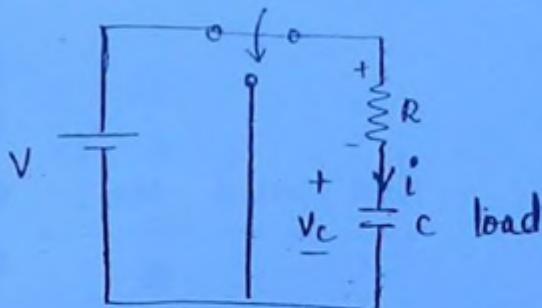 +
R
-
V
+
i
Vc
C load